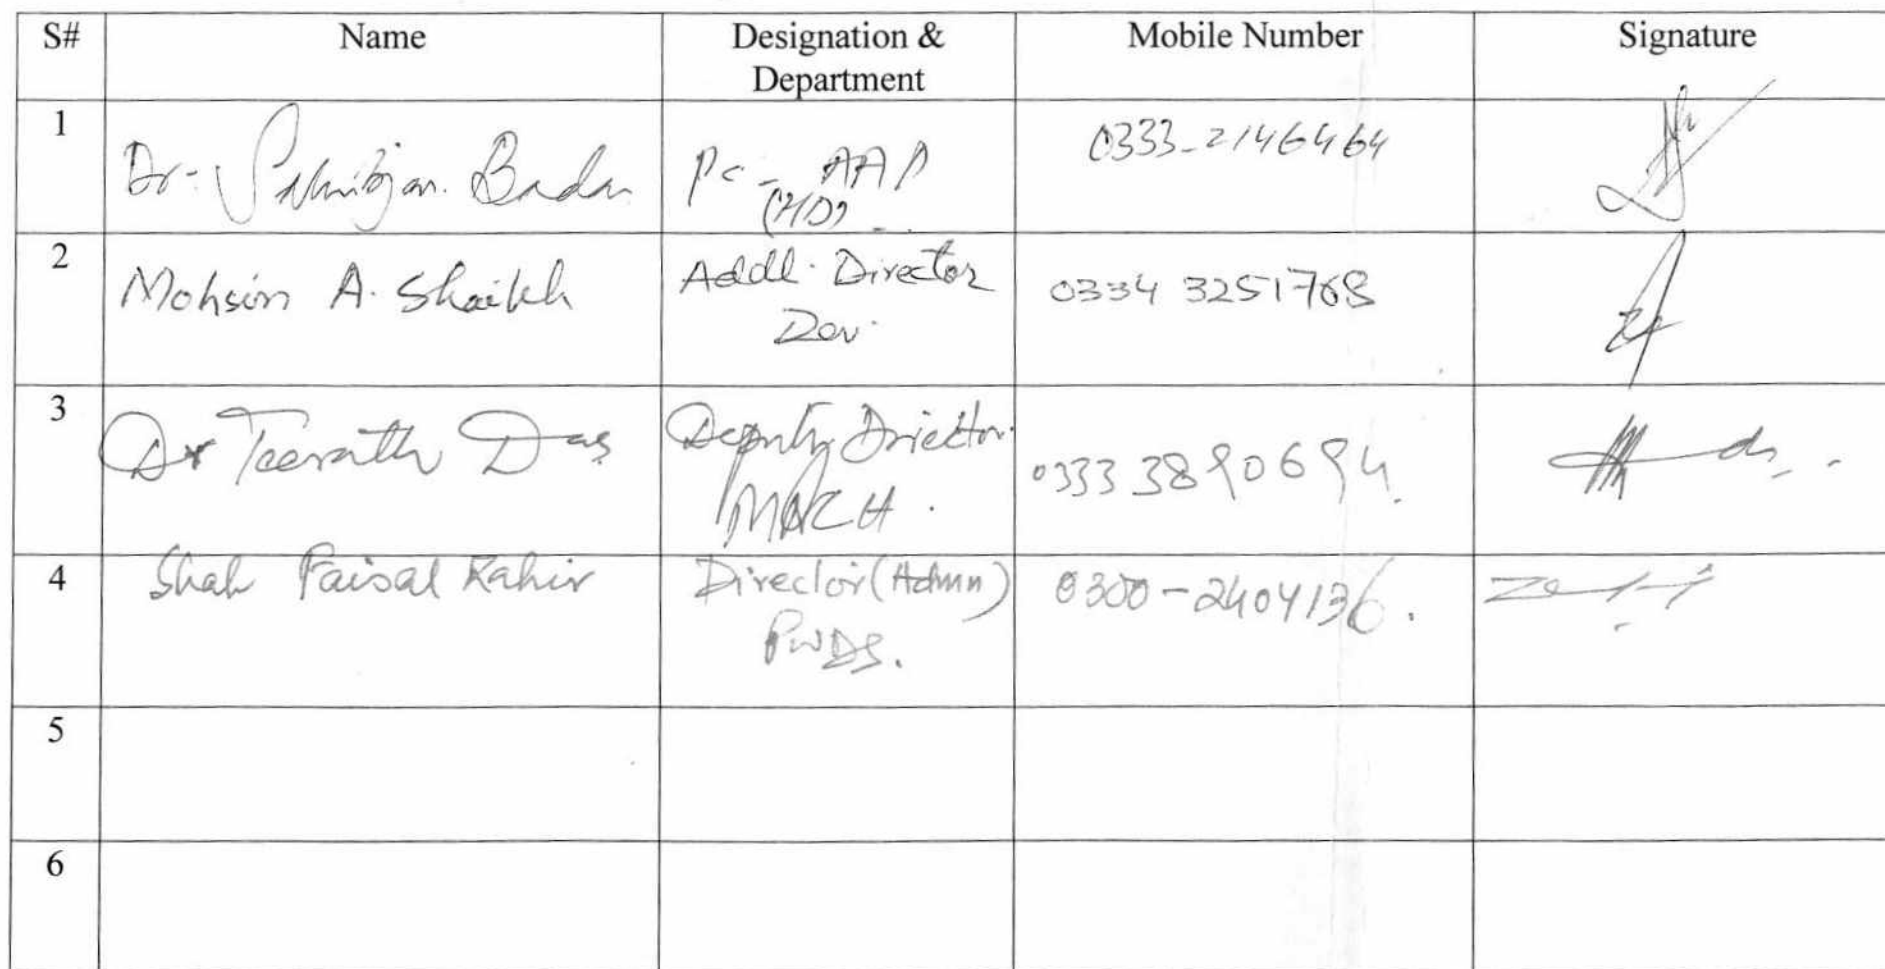 S# Name Designation & Department Mobile Number Signature
1 Dr. Sahibjan Badar PC - AAP (HD) 0333-2146464
2 Mohsin A. Shaikh Addl. Director Dev. 0334 3251768
3 Dr Teerath Das Deputy Director 0333 3890694
4 Shah Faisal Kahir Director (Admn) PWDS. 0300-2404136.
5
6